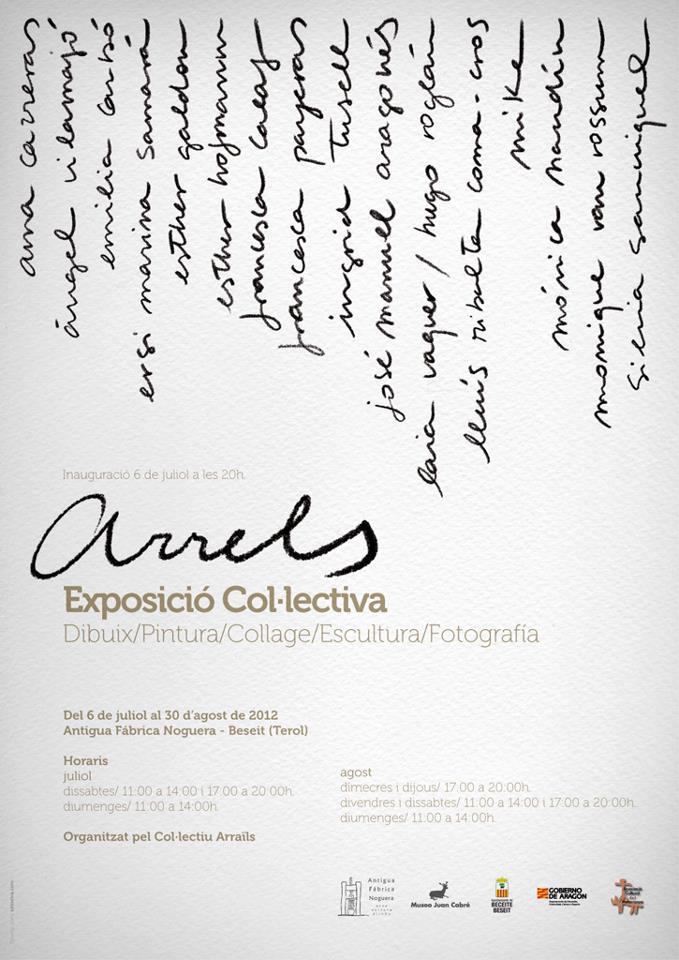 ana carreras
àngel vilamajó
emilia carbó
ersi marina samarà
esther galdon
esther hofmann
francesca casas
francesca payeras
ingrid tusell
josé manuel aragonés
laia vaquer / hugo roglán
lluís ribalta coma-cros
mike
mónica nandín
monique van rossum
sílvia sanmiquel
Inauguració 6 de juliol a les 20h.
arrels
Exposició Col·lectiva
Dibuix/Pintura/Collage/Escultura/Fotografía
Del 6 de juliol al 30 d'agost de 2012
Antigua Fábrica Noguera - Beseit (Terol)
Horaris
juliol
dissabtes/ 11:00 a 14:00 i 17:00 a 20:00h.
diumenges/ 11:00 a 14:00h.
agost
dimecres i dijous/ 17:00 a 20:00h.
divendres i dissabtes/ 11:00 a 14:00 i 17:00 a 20:00h.
diumenges/ 11:00 a 14:00h.
Organitzat pel Col·lectiu Arraïls
Antigua
Fábrica
Noguera
Museo Juan Cabré
BECEITE
BESEIT
GOBIERNO
DE ARAGON